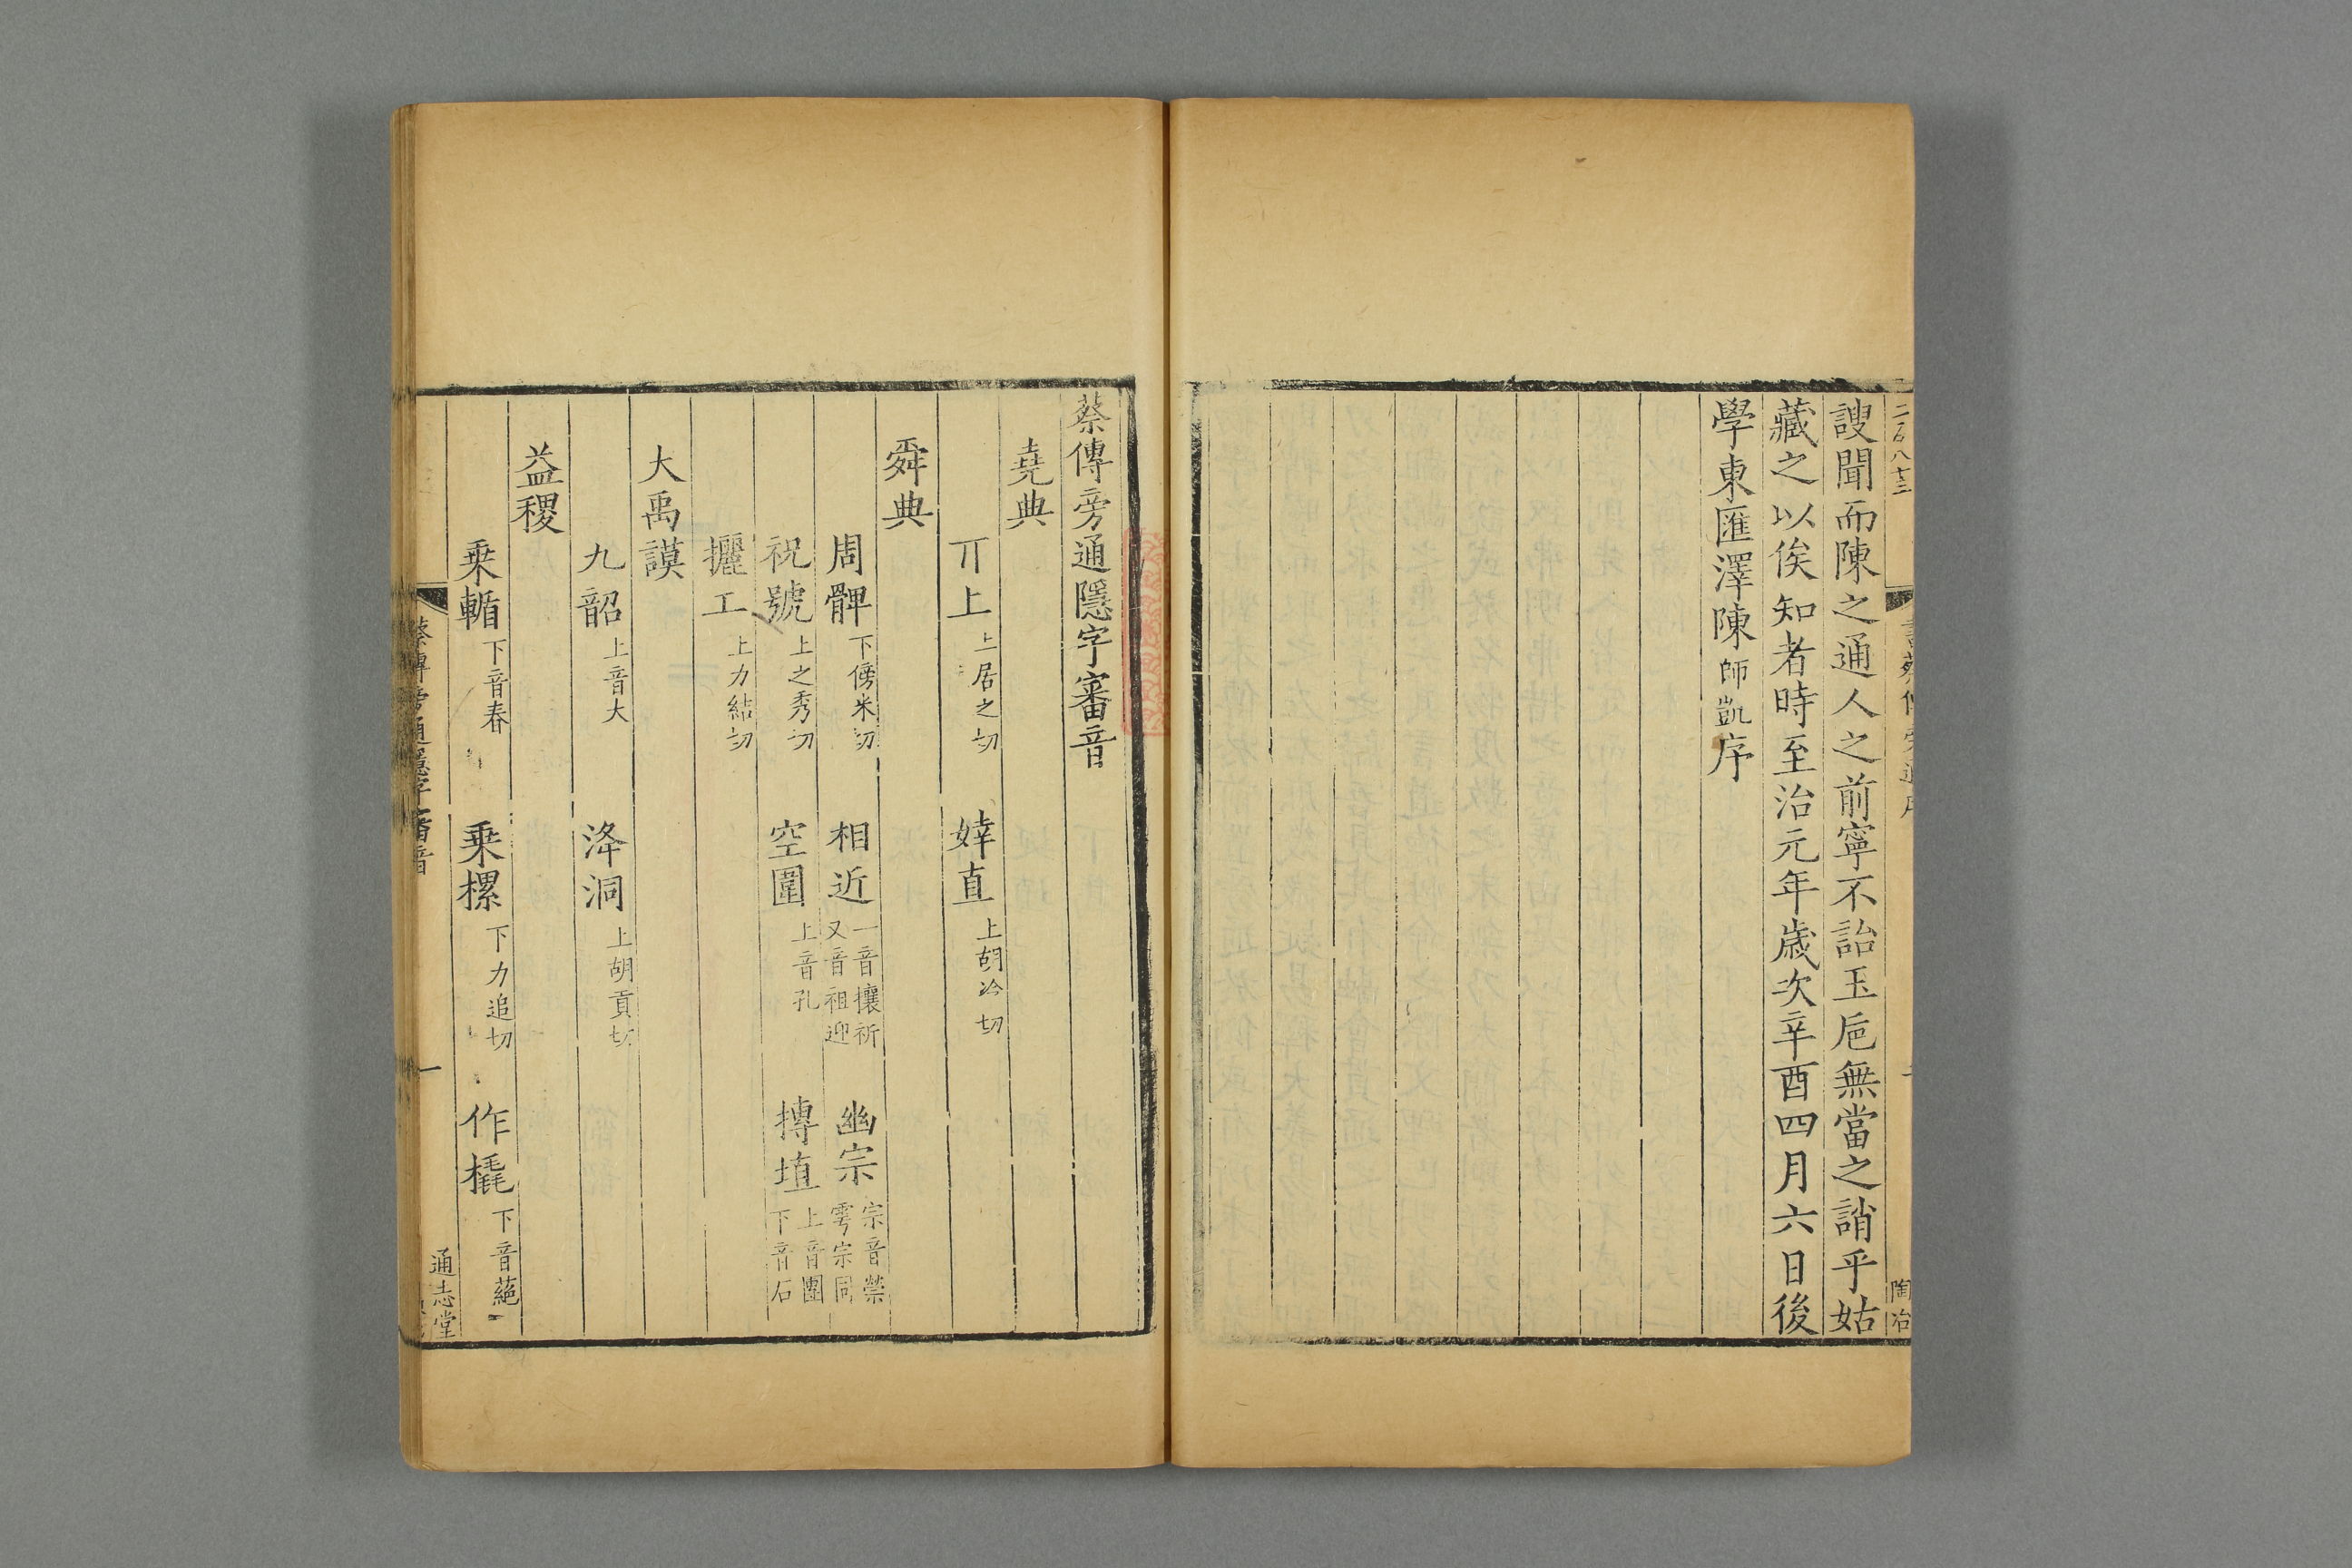 二百八十三
陶冶
謏聞而陳之通人之前寧不詒玉巵無當之誚乎姑
藏之以俟知者時至治元年歲次辛酉四月六日後
學東匯澤陳師凱序
蔡傳旁通隱字審音
堯典
丌上 上居之切 婞直 上胡冷切
舜典
周髀 下傍米切 相近 一音攘祈又音祖迎 幽宗 宗音禜雩宗同
祝號 上之秀切 空圍 上音孔 摶埴 上音團下音石
攦工 上力結切
大禹謨
九韶 上音大 洚洞 上胡貢切
益稷
乗輴 下音春 乗樏 下力追切 作橇 下音蕝
蔡傳旁通隱字審音
一
通志堂